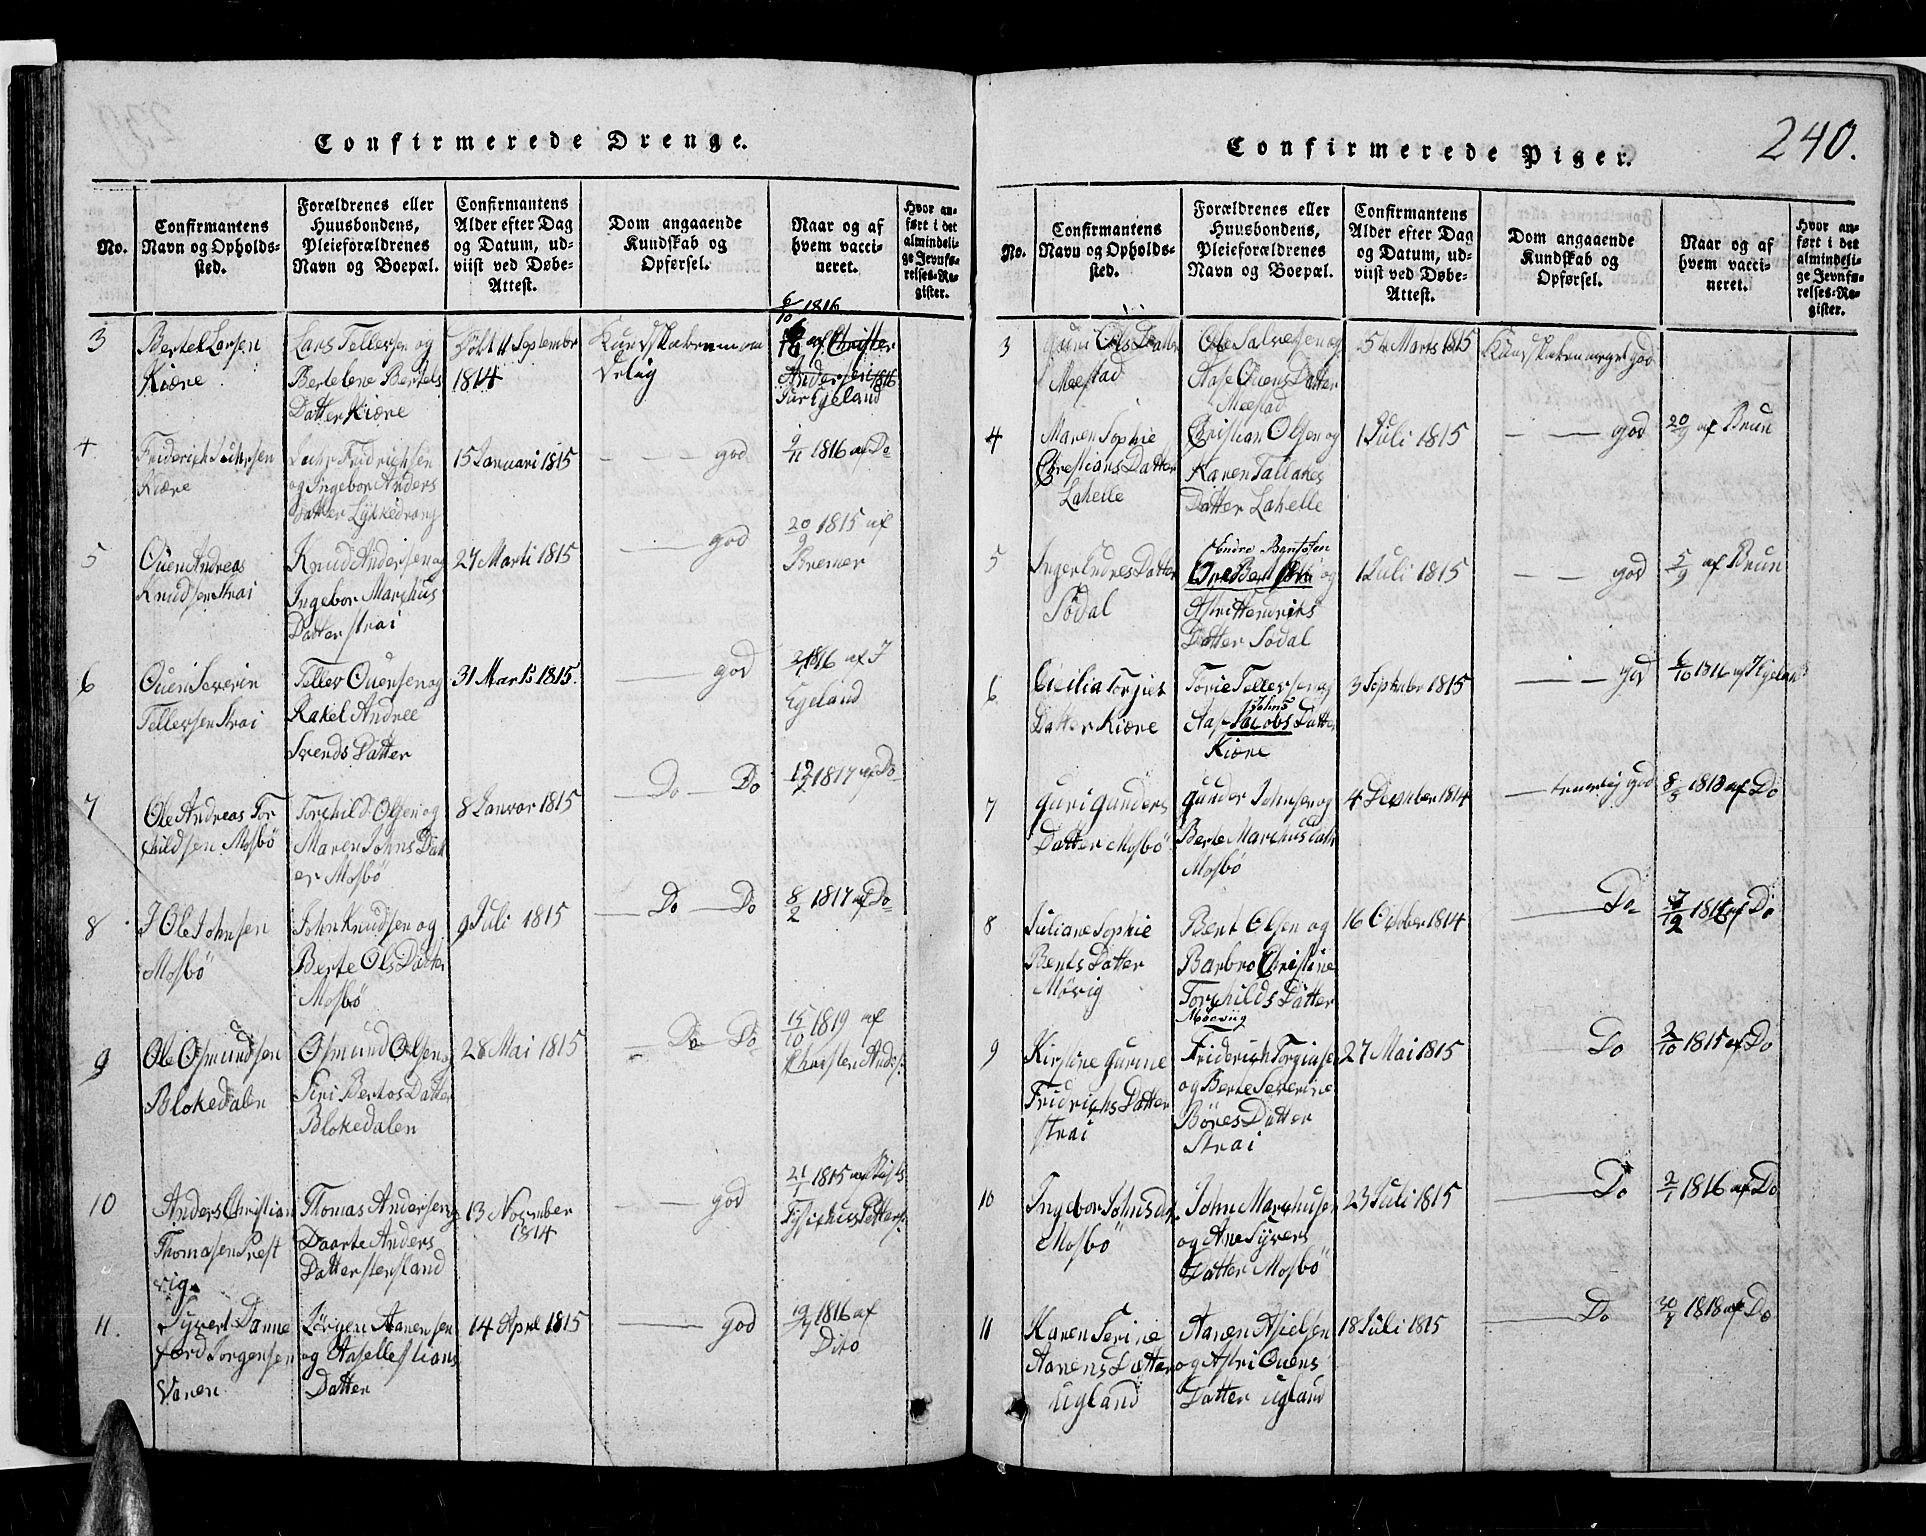 Confirmerede Drenge.
No.
Confirmantens
Navn og Opholds-
sted.
Forældrenes eller
Huusbondens,
Pleieforældrenes
Navn og Boepæl.
Confirmantens
Alder efter Dag
og Datum, ud-
viist ved Døbe-
Attest.
Dom angaaende
Kundskab og
Opførsel.
Naar og af
hvem vacci-
neret.
Hvor an-
ført i det
almindeli-
ge Jevnfø-
relses-Re-
gister.
3
Bertel Larsen
Kiære
Lars Tellefsen og
Bertelene Bertels
Datter Kiære
Døbt 11 September
1814
6/10 1816
6/10 af Christen
Andersen 1816
Egeland
4
Friderich
Kiære
og Ingebor Anders
Datter
15 Januari 1815
god
9/11 1816 af Do
5
Ouen Andreas
Knudsen Strai
Knud Andersen og
Ingebor Marchus
Datter Strai
27 Marti 1815
god
20/9 1815 af
Bremer
6
Ouen Severin
Tellefsen Strai
Tellev Ouensen og
Rakel Andree
Svends Datter
31 Marts 1815.
god
1816 af J
Egeland
7
Ole Andreas Tor
childsen Mosbö
Torchild Olsen og
Maren Johns Datt
er Mosbö
8 Januar 1815
Do Do
12/2 1817 af Do
8
J Ole Johnsen
Mosbö
John Knudsen og
Berte Ols Datter
Mosbö
9 Juli 1815
Do Do
8/2 1817 af Do
9
Ole Osmundsen
Blokedalen
Osmund Olsen og
Siri Bertos Datter
Blokedalen
28 Mai 1815
Do Do
15/10 1819 af
Christen Anders.
10
Anders Christian
Thomasen Prest
vig.
Thomas Andersen og
Daarte Anders
Datter Stensland
13 November
1814
god
21/1 1815 af
11.
Syvert Danne
ferd Jørgensen
Vanen
Jörgen Aanensen
og Aaselle Stians
Datter
14 Apri 1815
god
1816 af
Dito
240.
Confirmerede Piger.
No.
Confirmantens
Navn og Opholds-
sted.
Forældrenes eller
Huusbondens,
Pleieforældrenes
Navn og Boepæl.
Confirmantens
Alder efter Dag
og Datum, ud-
viist ved Døbe-
Attest.
Dom angaaende
Kundskab og
Opførsel.
Naar og af
hvem vacci-
neret.
Hvor an-
ført i det
almindeli-
ge Jevnfø-
relses-Re-
gister.
3
Guri Ols Datter
Meestad
Ole Salvesen og
Aase Ouens Datter
Meestad
5te Marts 1815
Kundskaben meget god
4
Maren Sophie
Chrestians Datter
Lahelle
Christian Olsen og
Karen Tallakes
Datter Lahelle
1 Juli 1815
god
20/9 af Brun
5
Inger Endres Datter
Södal
Endre Bentsen
og
Astri Hendriks
Datter Södal
1 Juli 1815
god
5/9 af Brun
6
Cicilia Torjus
Datter Kiære
Torie Tellefsen og
Johns
Aase Jacobs Datter
Kiære
3 September 1815
god
6/10 1816 af Egeland
7
Guri Gunders
Datter Mosbö
Gunder Johnsen og
Berte Marchus Datter
Mosbö
4 December 1814
god
8/5 1818 af Do
8
Juliane Sophie
Bents Datter
Mövig
Bent Olsen og
Barbro Christine
Torchilds Datter
Möevig
16 October 1814
Do
af Do
9
Kirstine Gurine
Fridrichs Datter
Strai
Friderich Torgiusen
og Berte Severine
Böres Datter
Strai
27 Mai 1815
Do
2/10 1815 af Do
10
Ingebor Johns
Mosbö
John Marchusen
og Ane Syvers
Datter Mosbö
23 Juli 1815
Do
2/1 1816 af Do
11
Karen Serine
Aanens Datter
Ugland
Aanen Asielsen
og Astri Ouens
Datter Ugland
18 Juli 1815
Do
1818 af Do